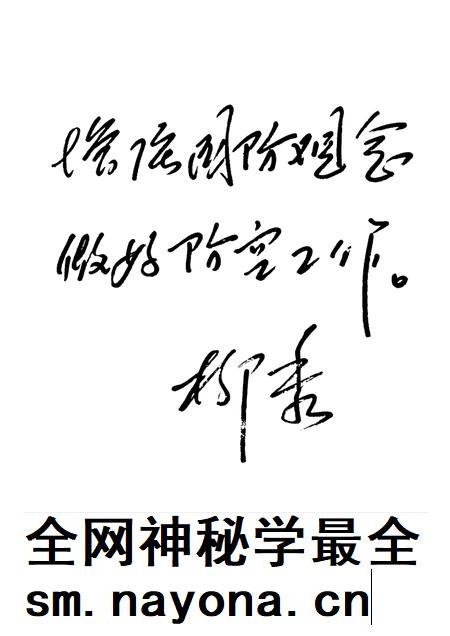 增强国防观念
做好防空工作。
柳
全网神秘学最全
sm.nayona.cn